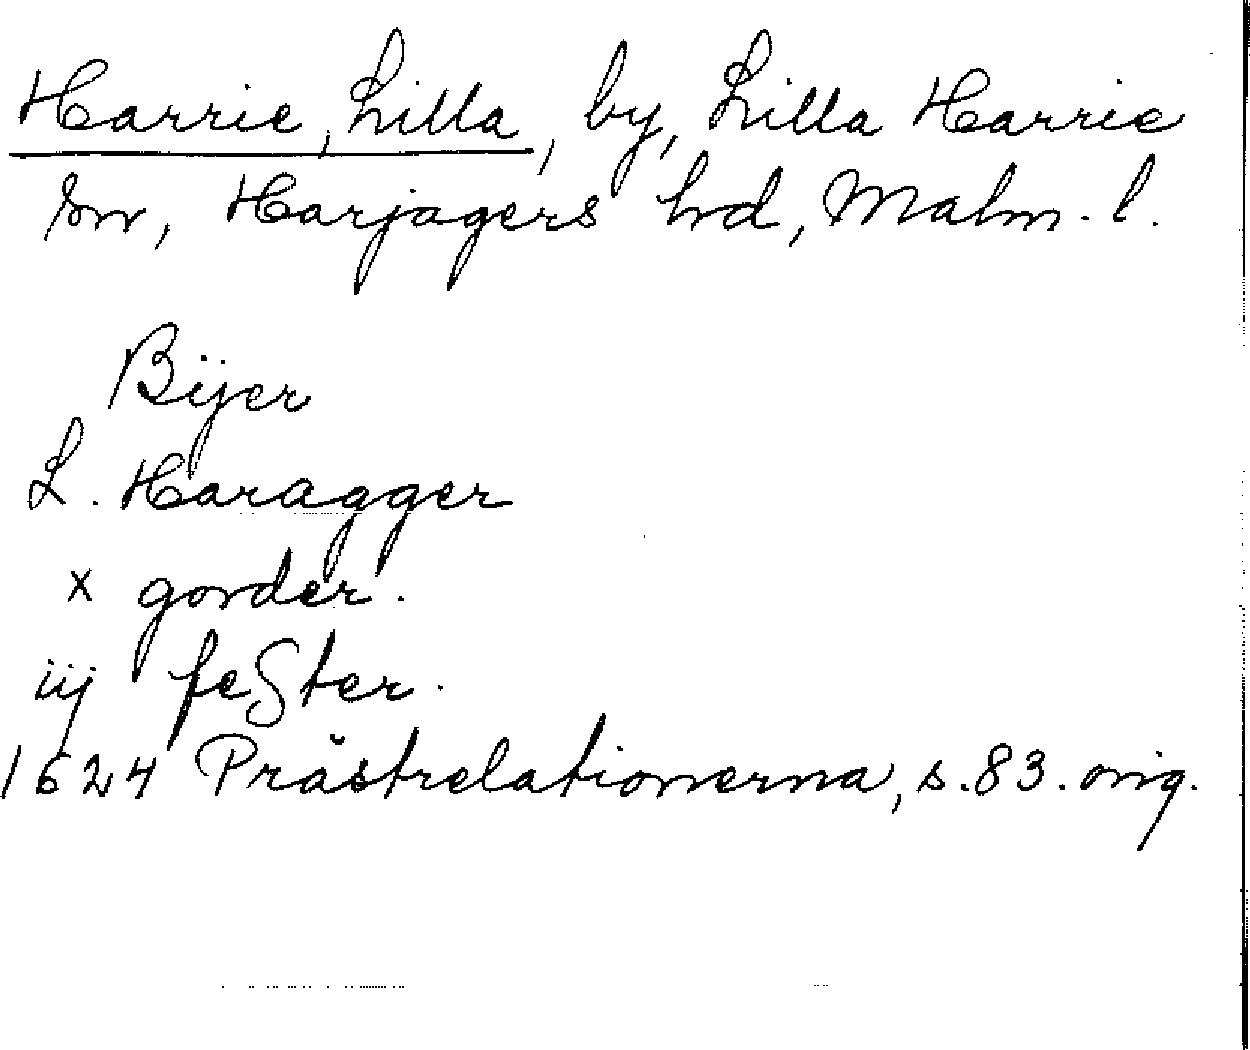 Harrie, Lilla, by, Lilla Harrie
sn, Harjagers hd, Malm. l.
Bijer
L. Haragger
x gorder.
iij fester.
1624 Prästrelationerna, s. 83. orig.